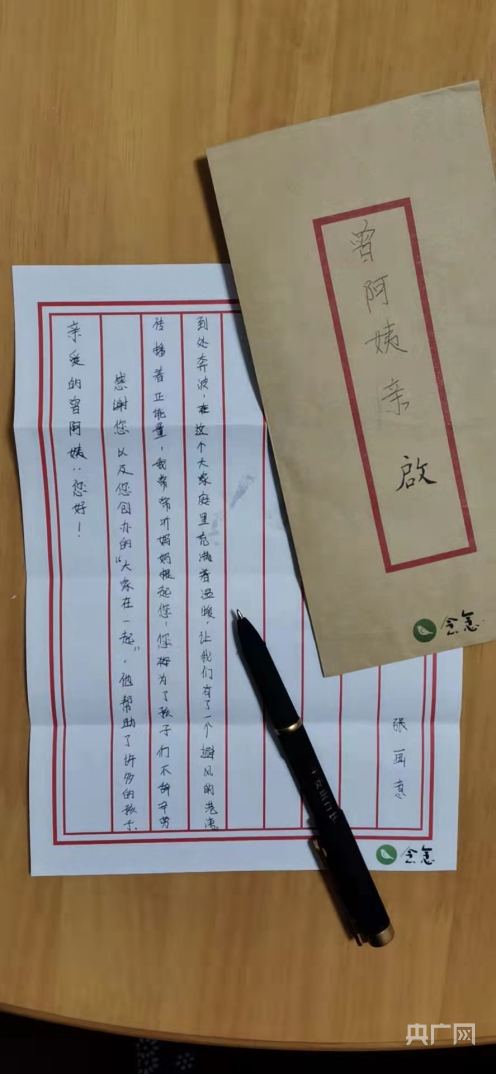 亲爱的曾阿姨：您好！
感谢您以及您创办的“大家在一起”，他帮助了许多的孩子，
传播着正能量，我常常听妈妈提起您，您 为了孩子们不辞辛劳
到处奔波，在这个大家庭里充满着温暖，让我们有了一个避风的港湾。
张
曾阿姨亲 啟
央广网